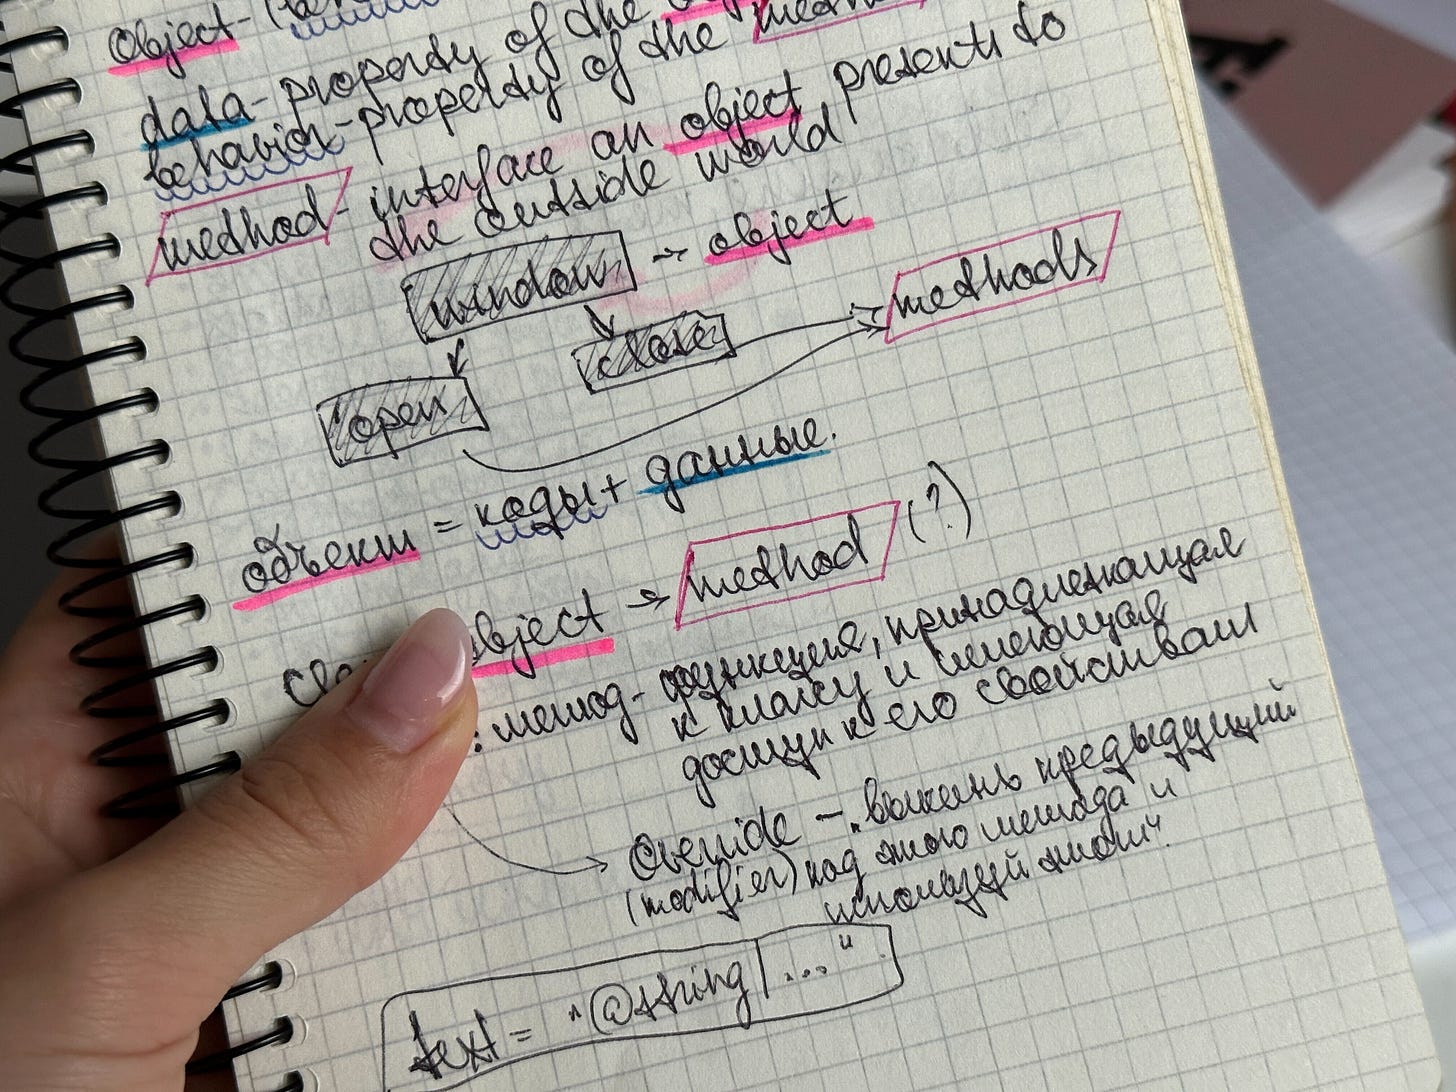 object - (
data - property of the
behavior - property of the
method - interface an object presents to
the outside world
window → object
methods
close
open
объект = коды + данные.
object → method (?)
: метод - функция, принадлежащая
к классу и имеющая
доступ к его свойствам
Override — „выкинь предыдущий
(modifier) код этого метода и
используй этот".
text = "@string/ ... "